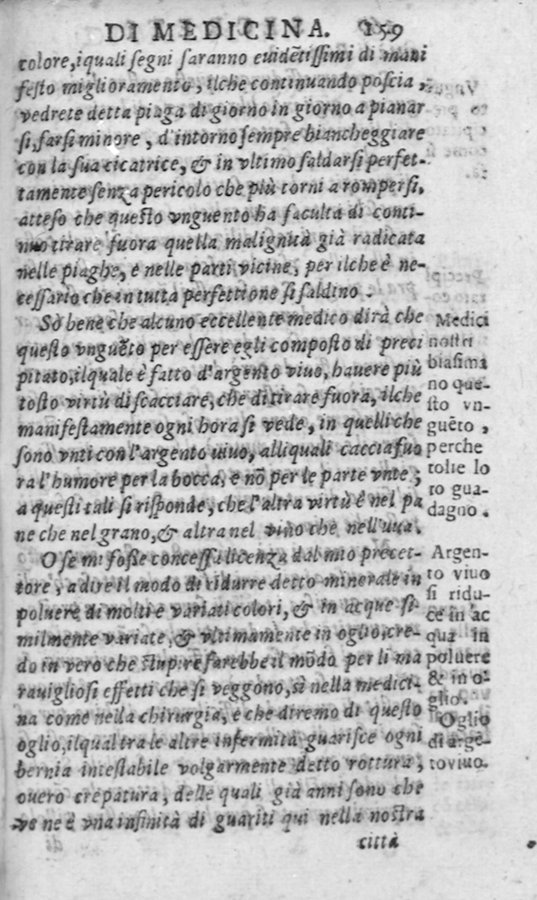 DI MEDICINA. 159
colore, i quali segni saranno euidẽtissimi di mani
festo miglioramento, ilche continuando poscia,
vedrete detta piaga di giorno in giorno a pianar
si, farsi minore, d'intorno sempre biancheggiare
con la sua cicatrice, & in vltimo saldarsi perfet-
tamente senza pericolo che più torni a rompersi,
atteso che questo vnguento ha facultà di conti-
nuo tirare fuora quella malignità già radicata
nelle piaghe, e nelle parti vicine, per ilche è ne-
cessario che in tutta perfettione si saldino.
So bene che alcuno eccellente medico dirà che
questo vnguẽto per essere egli composto di preci
pitato, ilquale è fatto d'argento viuo, hauere più
tosto virtù di scacciare, che di tirare fuora, ilche
manifestamente ogni hora si vede, in quelli che
sono vnti con l'argento uiuo, alliquali caccia fuo
ra l'humore per la bocca, e nõ per le parte vnte;
a questi tali si risponde, che l'altra virtù è nel pa
ne che nel grano, & altra nel vino che nell'uua.
O se mi fosse concessa licenza dal mio precet-
tore, a dire il modo di ridurre detto minerale in
poluere di molti e variati colori, & in acque si-
milmente variate, & vltimamente in oglio, cre-
do in vero che stupire farebbe il mõdo per li ma
rauigliosi effetti che si veggono, sì nella medici-
na come nella chirurgia, e che diremo di questo
oglio, ilqual tra le altre infermità guarisce ogni
hernia intestabile volgarmente detto rottura,
ouero crepatura, delle quali già anni sono che
ve ne è vna infinità di guariti qui nella nostra
città
Medici
nostri
biasima
no que-
sto vn-
guẽto,
perche
tolte lo
ro gua-
dagno.
Argen-
to viuo
si ridu-
ce in ac
qua in
poluere
& in o-
glio.
Oglio
di argẽ-
to viuo.